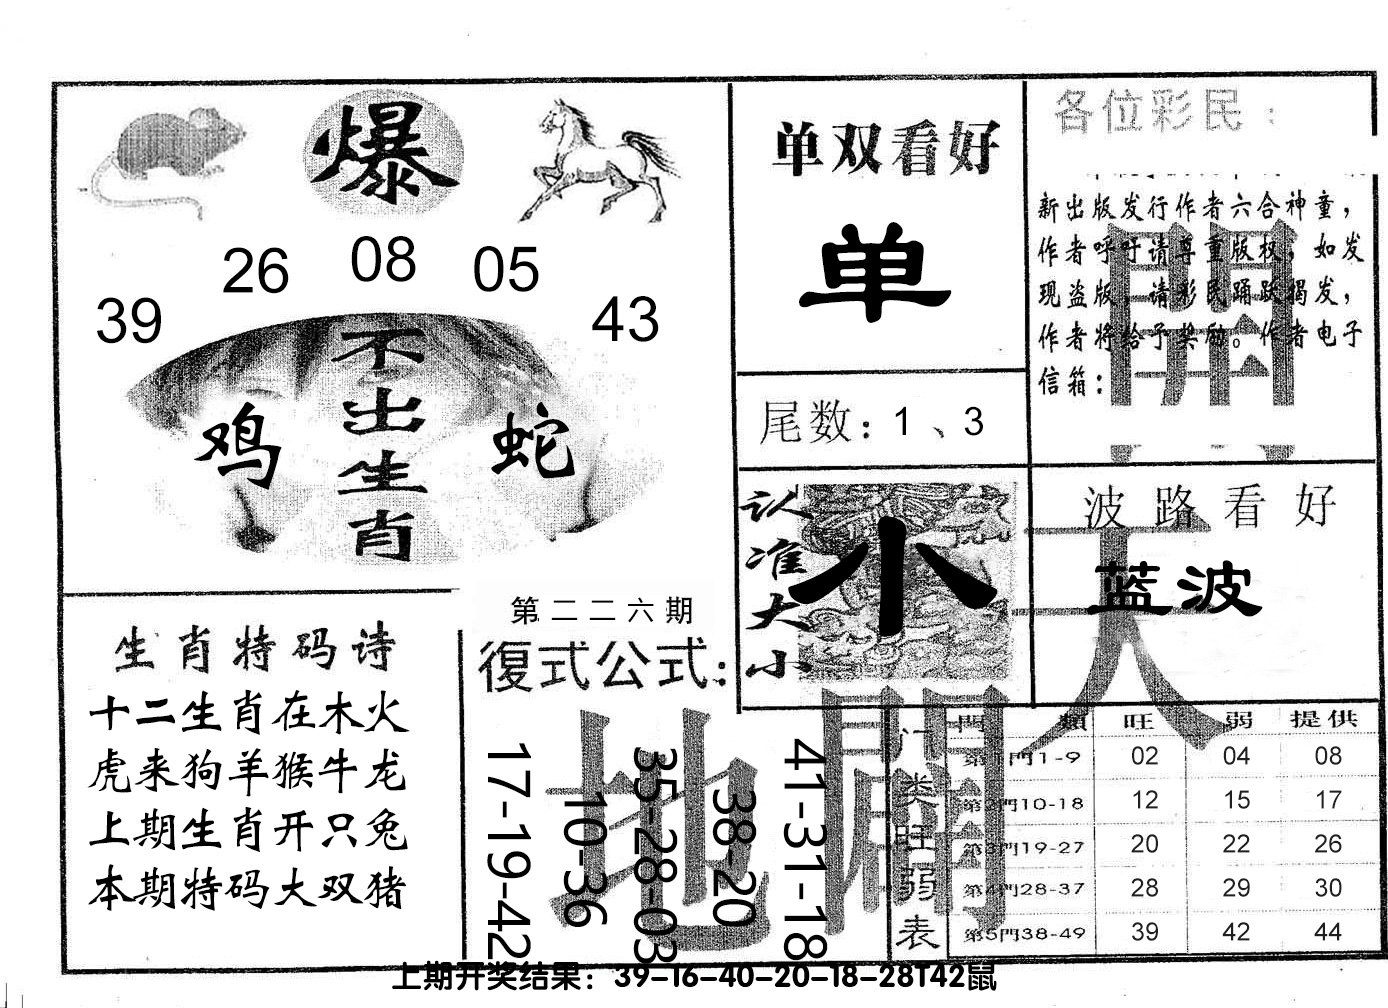 爆
39 26 08 05 43
不出生肖
鸡 蛇
单双看好
单
尾数：1、3
各位彩民：
新出版发行作者六合神童，
作者呼吁请尊重版权，如发
现盗版，请彩民踊跃揭发，
作者将给予奖励。作者电子
信箱：
開
认准大小
小
波路看好
蓝波
天
生肖特码诗
十二生肖在木火
虎来狗羊猴牛龙
上期生肖开只兔
本期特码大双猪
第二二六期
復式公式：
17-19-42
10-36
35-28-03
38-20
41-31-18
地
開
门类旺弱表
門 類 旺 弱 提供
第1門1-9 02 04 08
第2門10-18 12 15 17
第3門19-27 20 22 26
第4門28-37 28 29 30
第5門38-49 39 42 44
上期开奖结果：39-16-40-20-18-28T42鼠